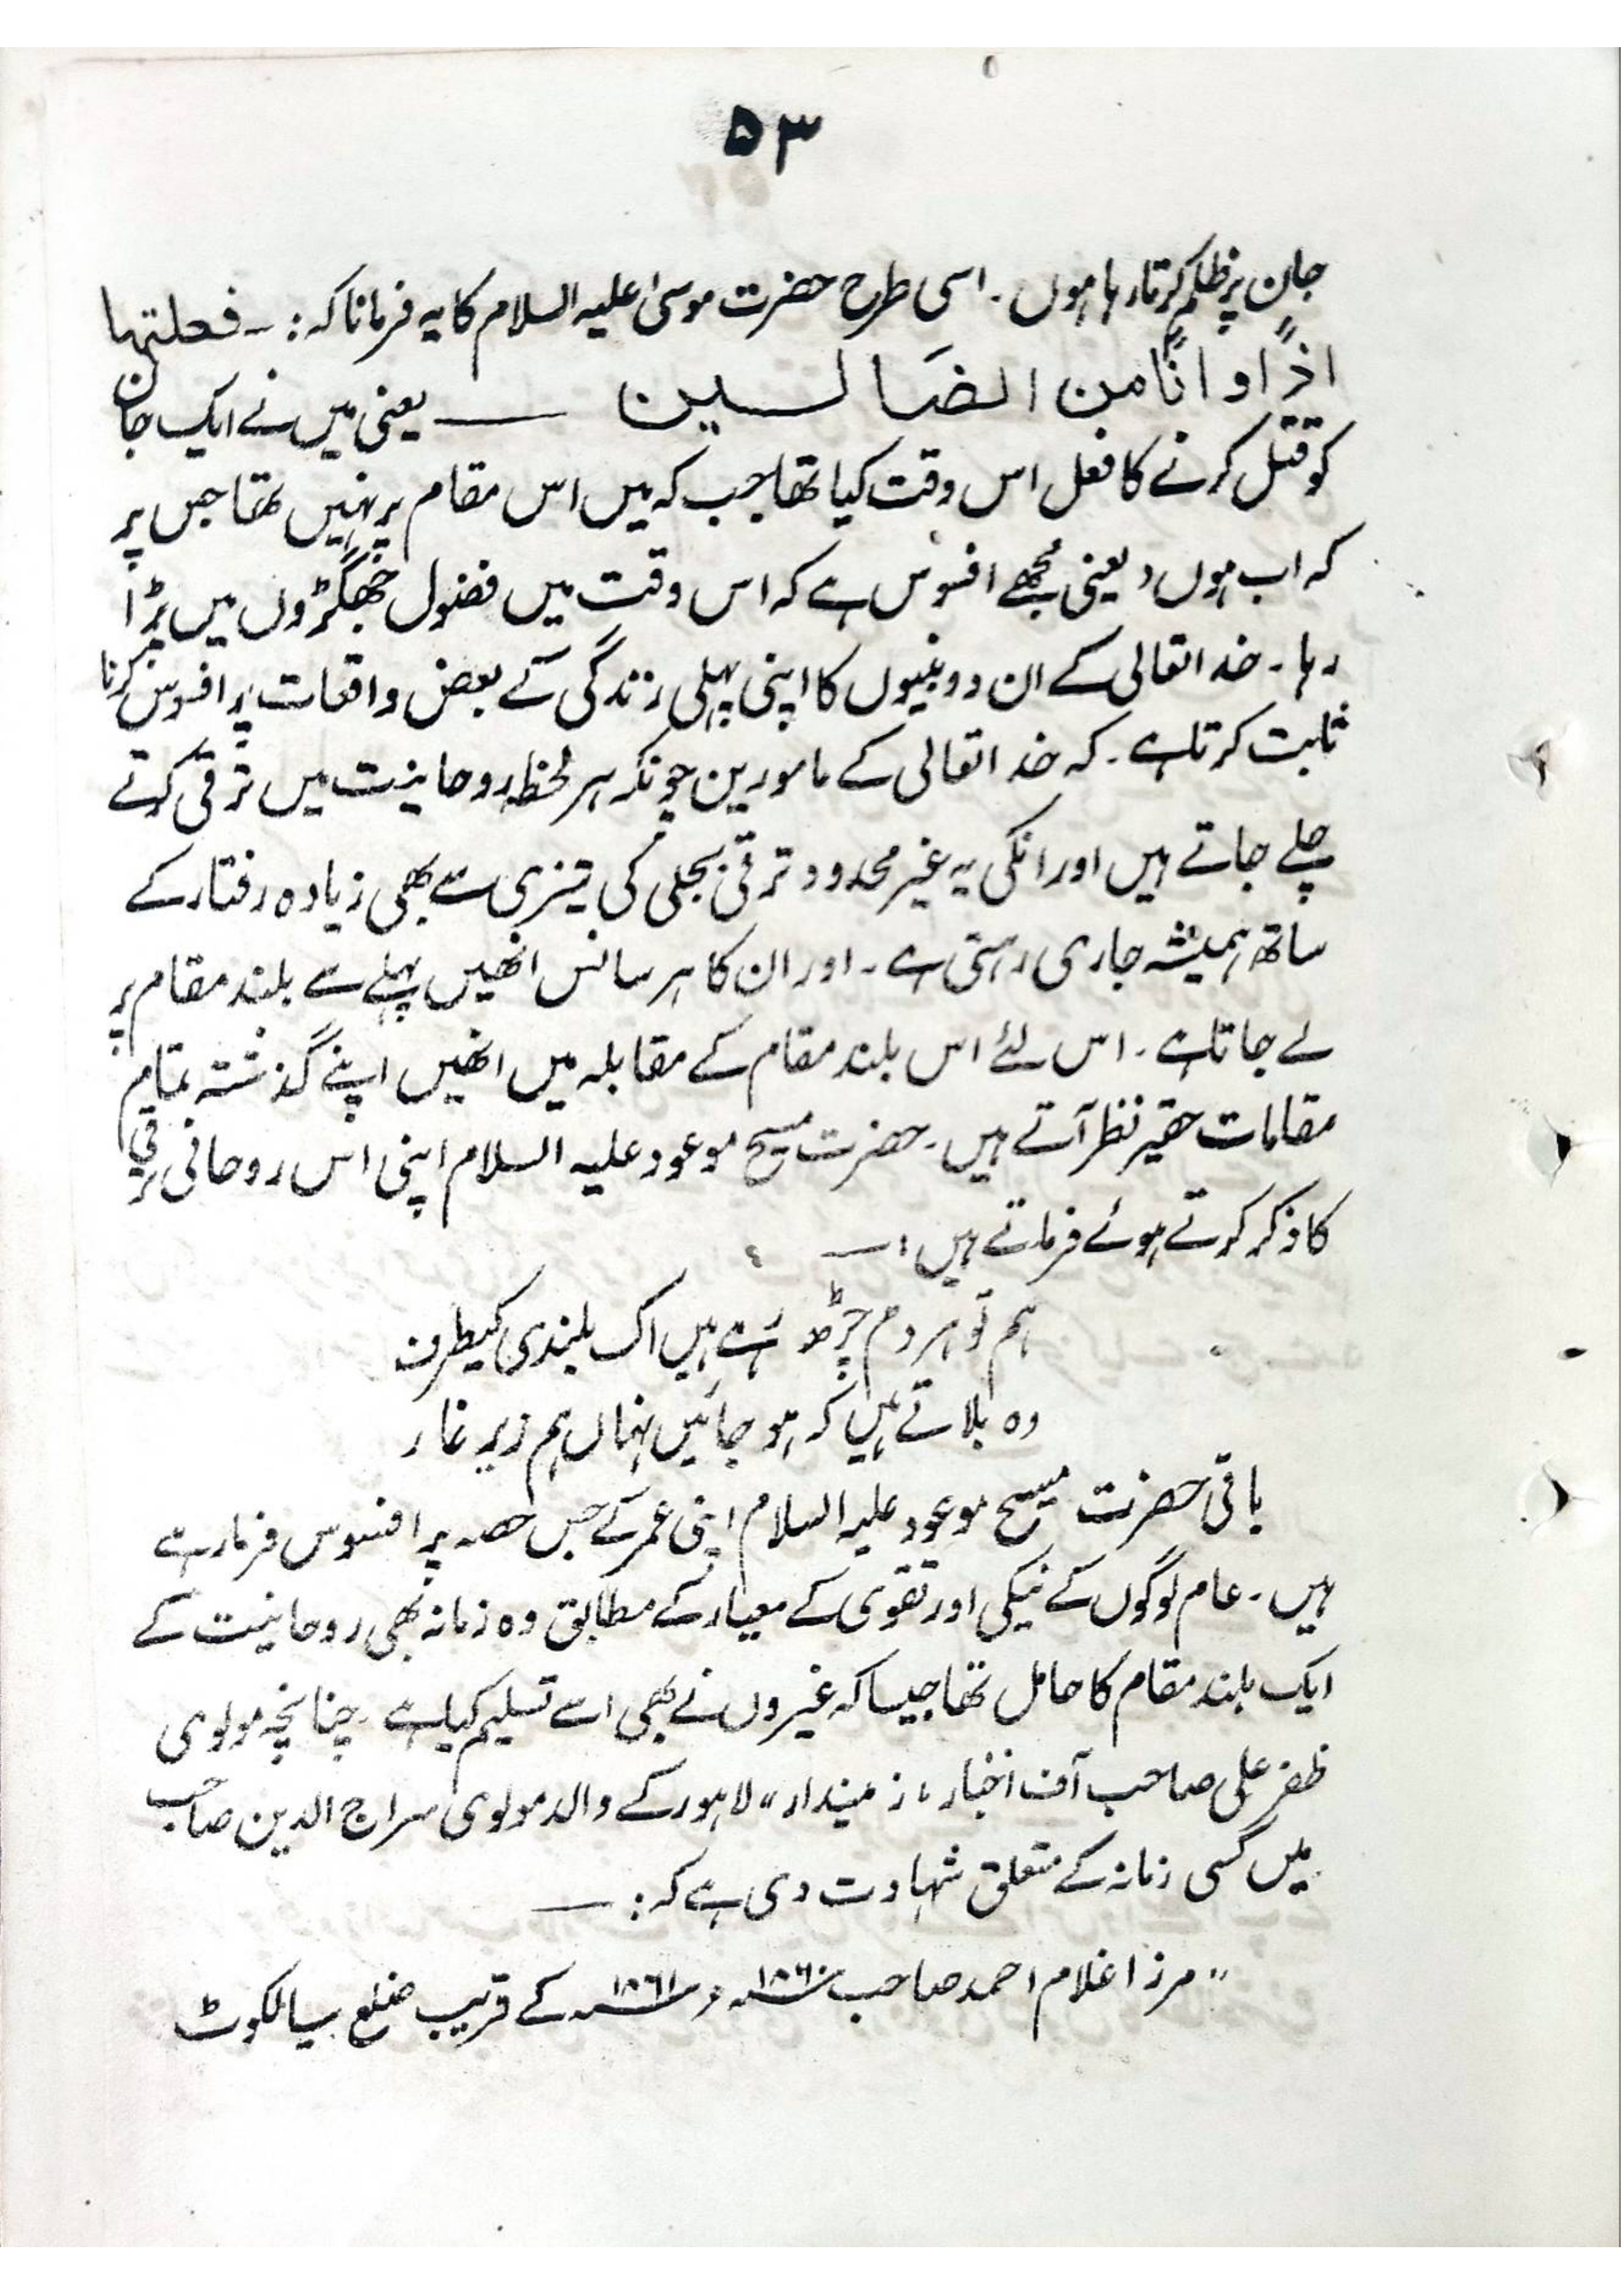 ۵۳
جان پر ظلم کرتا رہا ہوں۔ اسی طرح حضرت موسیٰ علیہ السلام کا یہ فرمانا کہ :۔ فعلتہا
اذًا و انّا من الضالین ــــ یعنی میں نے ایک جان
کو قتل کرنے کا فعل اس وقت کیا تھا جب کہ میں اس مقام پر نہیں تھا جس پر
کہ اب ہوں، یعنی مجھے افسوس ہے کہ اس وقت میں فضول جھگڑوں میں پڑا
رہا۔ خدا تعالی کے ان دو نبیوں کا اپنی پہلی زندگی کے بعض واقعات پر افسوس کرنا
ثابت کرتا ہے۔ کہ خدا تعالی کے مامورین چونکہ ہر لحظہ روحانیت میں ترقی کرتے
چلے جاتے ہیں اور انکی یہ غیر محدود ترقی بجلی کی تیزی سے بھی زیادہ رفتار کے
ساتھ ہمیشہ جاری رہتی ہے۔ اور ان کا ہر سانس انھیں پہلے سے بلند مقام پر
لے جاتا ہے۔ اس لئے اس بلند مقام کے مقابلہ میں انھیں اپنے گذشتہ تمام
مقامات حقیر نظر آتے ہیں۔ حضرت مسیح موعود علیہ السلام اپنی اس روحانی ترقی
کا ذکر کرتے ہوئے فرماتے ہیں :۔
ہم تو ہر دم چڑھ رہے ہیں اک بلندی کیطرف
وہ بلاتے ہیں کہ ہو جائیں نہاں ہم زیر غار
باقی حضرت مسیح موعود علیہ السلام اپنی عمر کے جس حصہ پر افسوس فرما رہے
ہیں۔ عام لوگوں کے نیکی اور تقوی کے معیار کے مطابق وہ زمانہ بھی روحانیت کے
ایک بلند مقام کا حامل تھا جیسا کہ غیروں نے بھی اسے تسلیم کیا ہے۔ چنانچہ مولوی
ظفر علی صاحب آف اخبار "زمیندار" لاہور کے والد مولوی سراج الدین صاحب
میں کسی زمانہ کے متعلق شہادت دی ہے کہ :۔
"مرزا غلام احمد صاحب ۱۸۶۰ء و ۱۸۶۱ء کے قریب ضلع سیالکوٹ